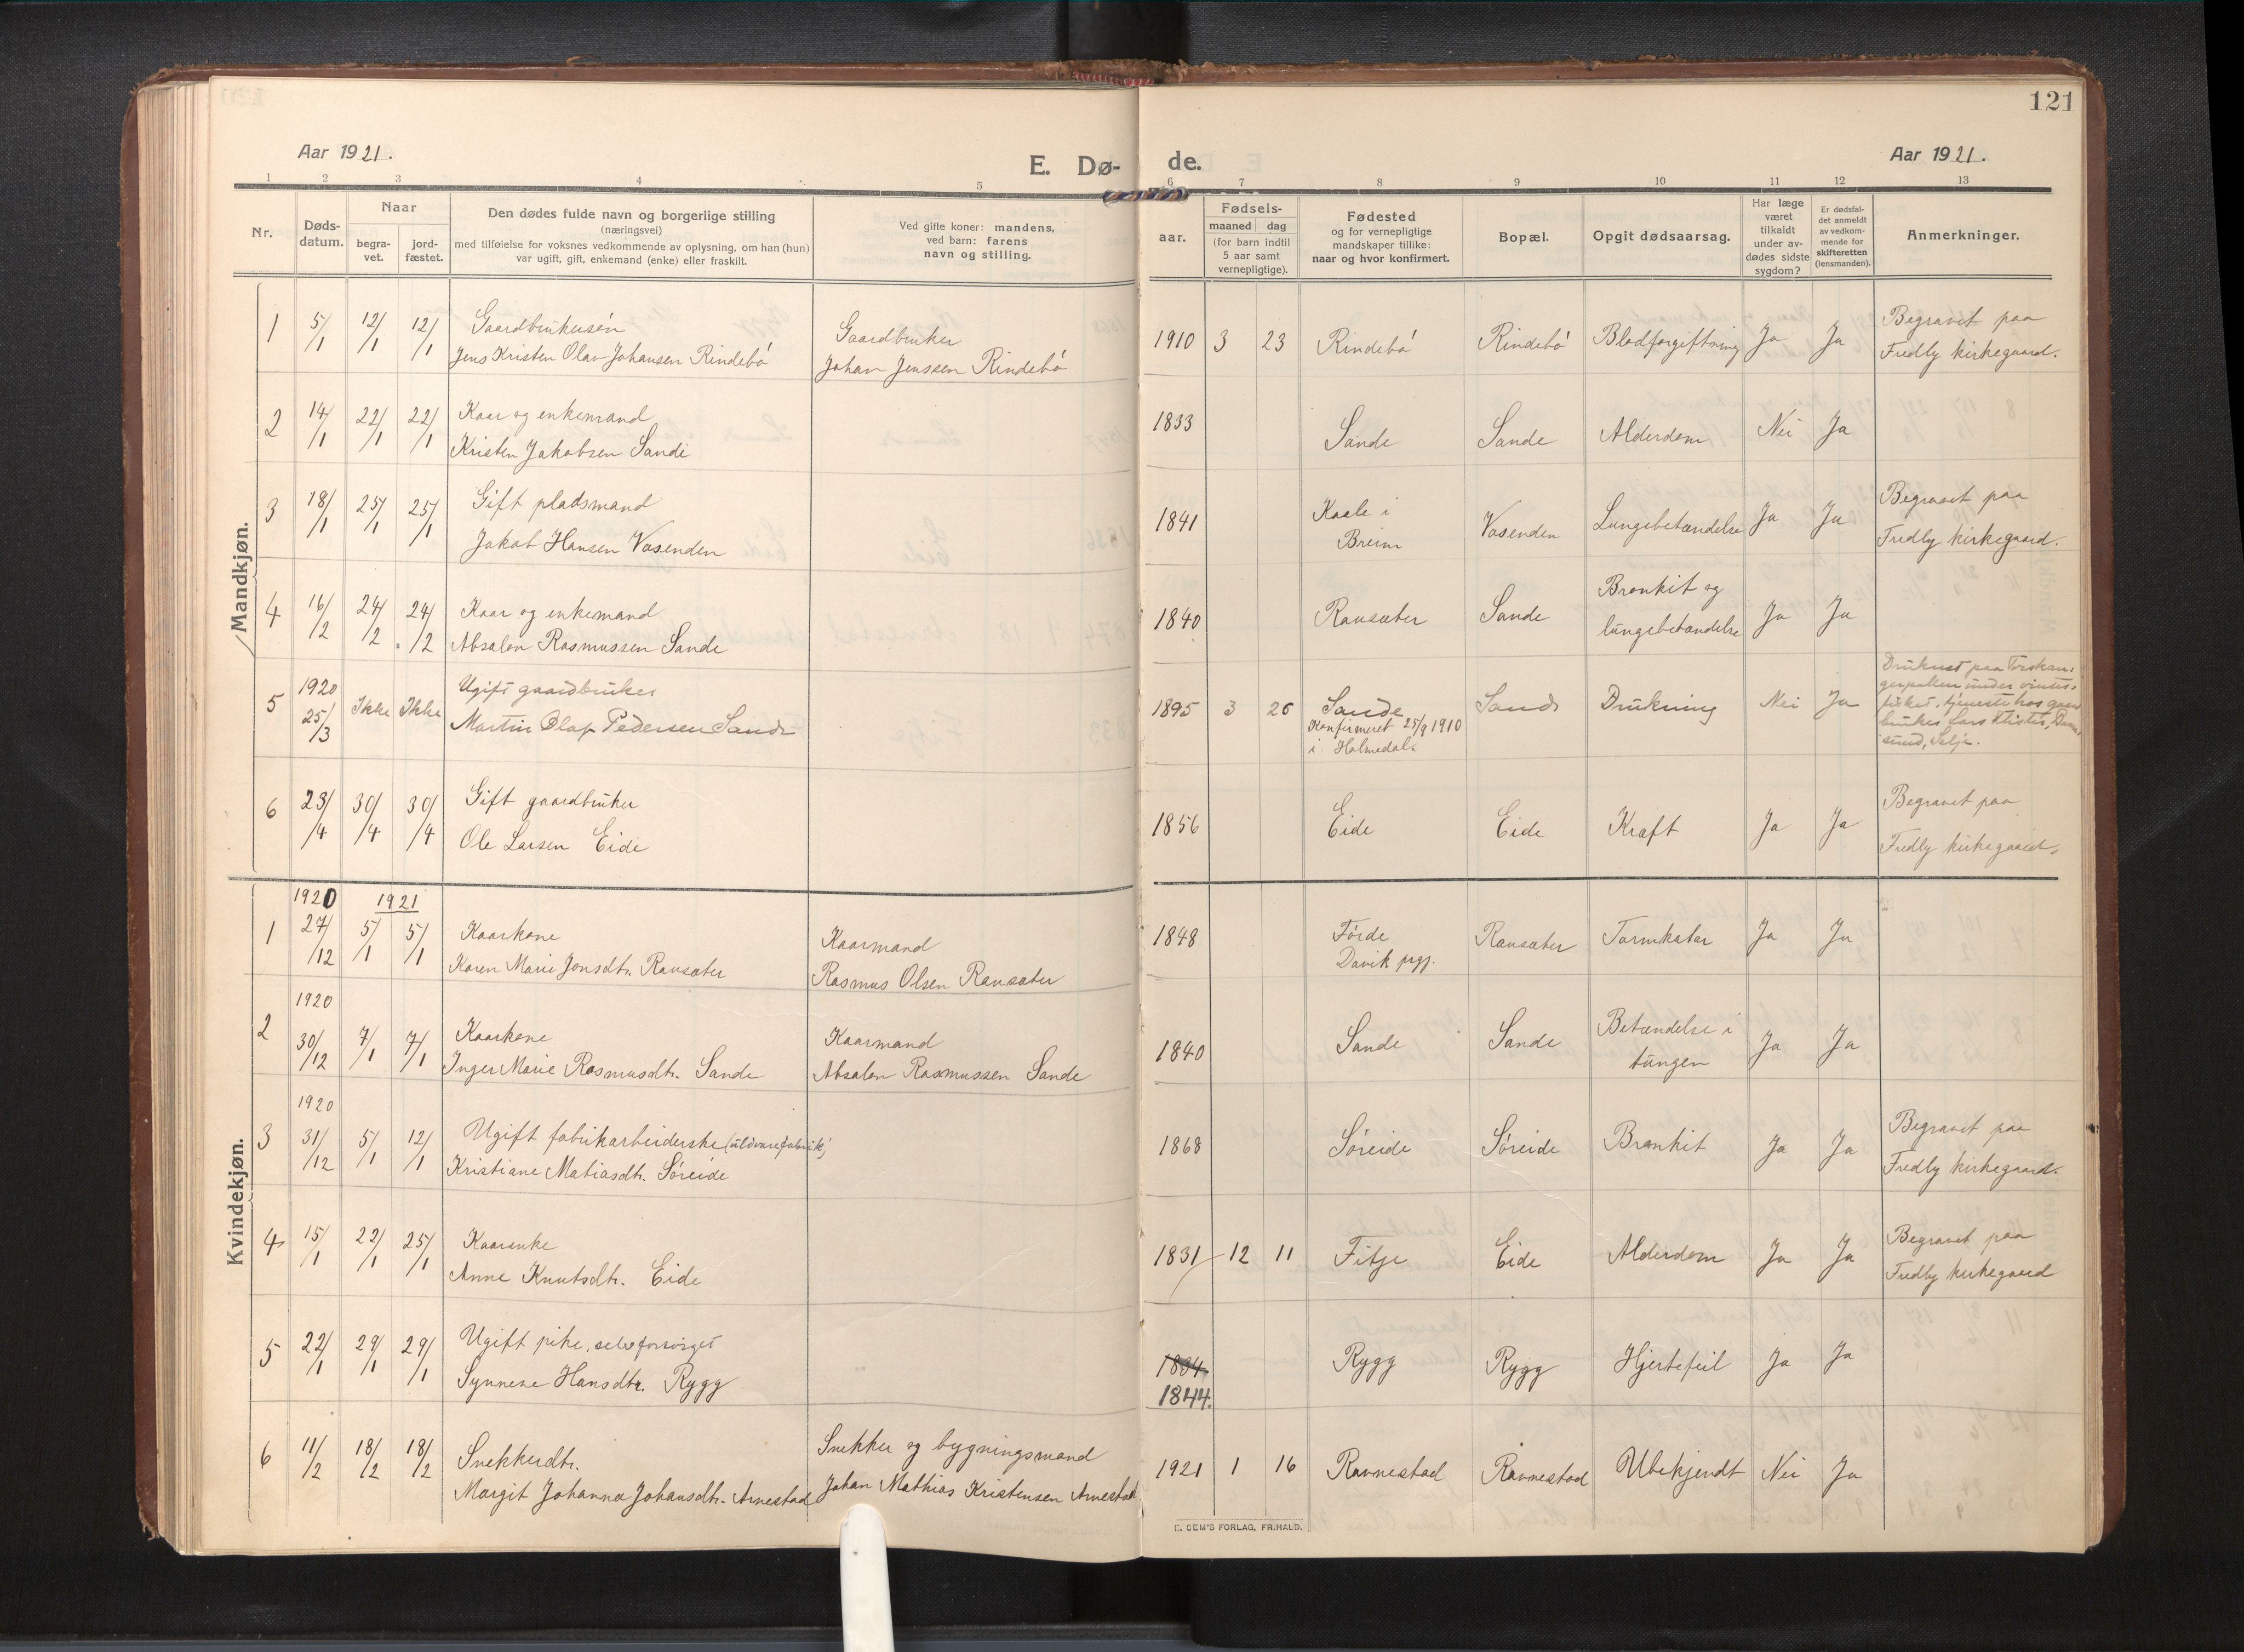 121
Aar 1921.
E. Dø-
de.
Aar 1921.
1 2 3 4 5 6 7 8 9 10 11 12 13
Nr.
Døds-
datum.
Naar
begra-
vet.
jord-
fæstet.
Den dødes fulde navn og borgerlige stilling
(næringsvei)
med tilføielse for voksnes vedkommende av oplysning, om han (hun)
var ugift, gift, enkemand (enke) eller fraskilt.
Ved gifte koner: mandens,
ved barn: farens
navn og stilling.
aar.
Fødsels-
maaned dag
(for barn indtil
5 aar samt
vernepligtige).
Fødested
og for vernepligtige
mandskaper tillike:
naar og hvor konfirmert.
Bopæl.
Opgit dødsaarsag.
Har læge
været
tilkaldt
under av-
dødes sidste
sygdom?
Er dødsfal-
det anmeldt
av vedkom-
mende for
skifteretten
(lensmanden).
Anmerkninger.
Mandkjøn.
1 5/1 12/1 12/1
Gaardbrukersøn
Jens Kristen Olav Johansen Rindebø
Gaardbruker
Johan Jenssen Rindebø
1910 3 23 Rindebø Rindebø Blodforgiftning Ja Ja
Begravet paa
Fredly kirkegaard.
2 14/1 22/1 22/1
Kaar og enkemand
Kristen Jakobsen Sande
1833 Sande Sande Alderdom Nei Ja
3 18/1 25/1 25/1
Gift pladsmand
Jakob Hansen Vasenden
1841
Kaale i
Breim
Vasenden Lungebetændelse Ja Ja
Begravet paa
Fredly kirkegaard.
4 16/2 24/2 24/2
Kaar og enkemand
Absalon Rasmussen Sande
1840 Ravsæter Sande
Bronkit og
lungebetændelse
Ja Ja
5 1920
25/3 Ikke Ikke
Ugift gaardbruker
Martin Olaf Pedersen Sande
1895 3 26 Sande
Konfirmeret 25/9 1910
i Holmedal.
Sande Drukning Nei Ja
Druknet paa
under vinter-
fisket, tjeneste hos
bruker Lars
Selje.
6 23/4 30/4 30/4
Gift gaardbruker
Ole Larsen Eide
1856 Eide Eide Kræft Ja Ja
Begravet paa
Fredly kirkegaard.
Kvindekjøn.
1 1920
27/12
1921
5/1 5/1
Kaarkone
Karen Marie Jonsdtr. Ravsæter
Kaarmand
Rasmus Olsen Ravsæter
1848
Førde
Davik prgj.
Ravsæter Tarmkatar Ja Ja
2 1920
30/12 7/1 7/1
Kaarkone
Inger Marie Rasmusdtr. Sande
Kaarmand
Absalon Rasmussen Sande
1840 Sande Sande
Betændelse i
tungen
Ja Ja
3 1920
31/12 5/1 12/1
Ugift fabrikarbeiderske (uldvarefabrik)
Kristiane Matiasdtr. Søreide
1868 Søreide Søreide Bronkit Ja Ja
Begravet paa
Fredly kirkegaard.
4 15/1 22/1 25/1
Kaarenke
Anne Knutsdtr. Eide
1831 12 11 Fitje Eide Alderdom Ja Ja
Begravet paa
Fredly kirkegaard
5 22/1 29/1 29/1
Ugift pike, selvforsørget
Synneve Hansdtr. Rygg
1834
1844.
Rygg Rygg Hjertefeil Ja Ja
6 11/2 18/2 18/2
Snekkerdtr.
Margit Johanna Johansdtr. Arnestad
Snekker og bygningsmand
Johan Mathias Kristensen Arnestad
1921 1 16 Ravnestad Ravnestad Ubekjendt Nei Ja
E. SEM'S FORLAG, FR.HALD.